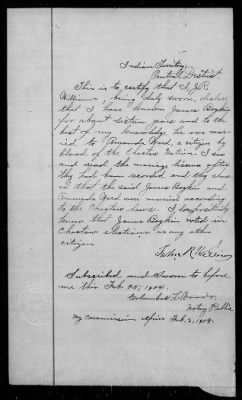 Indian Territory,
Central District.
This is to certify that I, J.R.
Williams, being duly sworn, declare
that I have known James Boykin
for about sixteen years and to the
best of my knowledge he was mar-
ried to Amanda Ward, a citizen by
blood of the Choctaw Nation. I saw
and read the marriage license after
they had been recorded and they show-
ed that the said James Boykin and
Amanda Ward were married according
to the Choctaw laws. I
know that James Boykin voted in
Choctaw elections as any other
citizen.
John R. Williams
Subscribed and sworn to before
me this Feb. 25, 1904.
Notary Public
My commission expires Feb. 3, 1908.